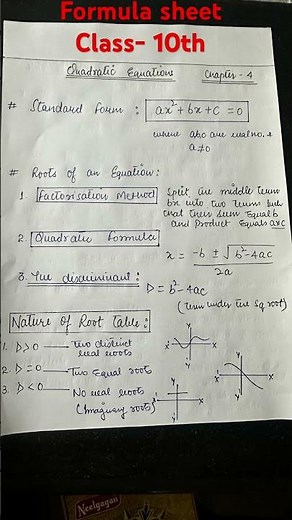 Formula sheet
Class- 10th
Quadratic Equations Chapter - 4
# Standard form : ax² + bx + c = 0
where abc are real no. &
a ≠ 0
# Roots of an Equation :
1. Factorisation Method Split the middle term
bx into two terms such
that their Sum Equal b
and Product Equals axc
2. Quadratic Formula x = -b ± √b²-4ac / 2a
3. The discriminant : D = b²-4ac
(Term under the sq root)
Nature of Root Table :
1. D>0 — two distinct
real roots
2. D=0 — Two Equal roots
3. D<0 — No real roots
(Imaginary roots)
Y
X X
Y
Y
X X
Y
Y
X X
Y
Neelgagan